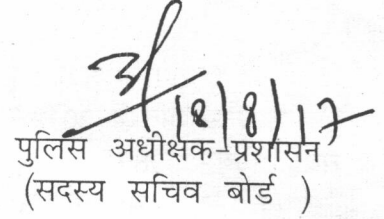 18/8/17
पुलिस अधीक्षक-प्रशासन
(सदस्य सचिव बोर्ड )